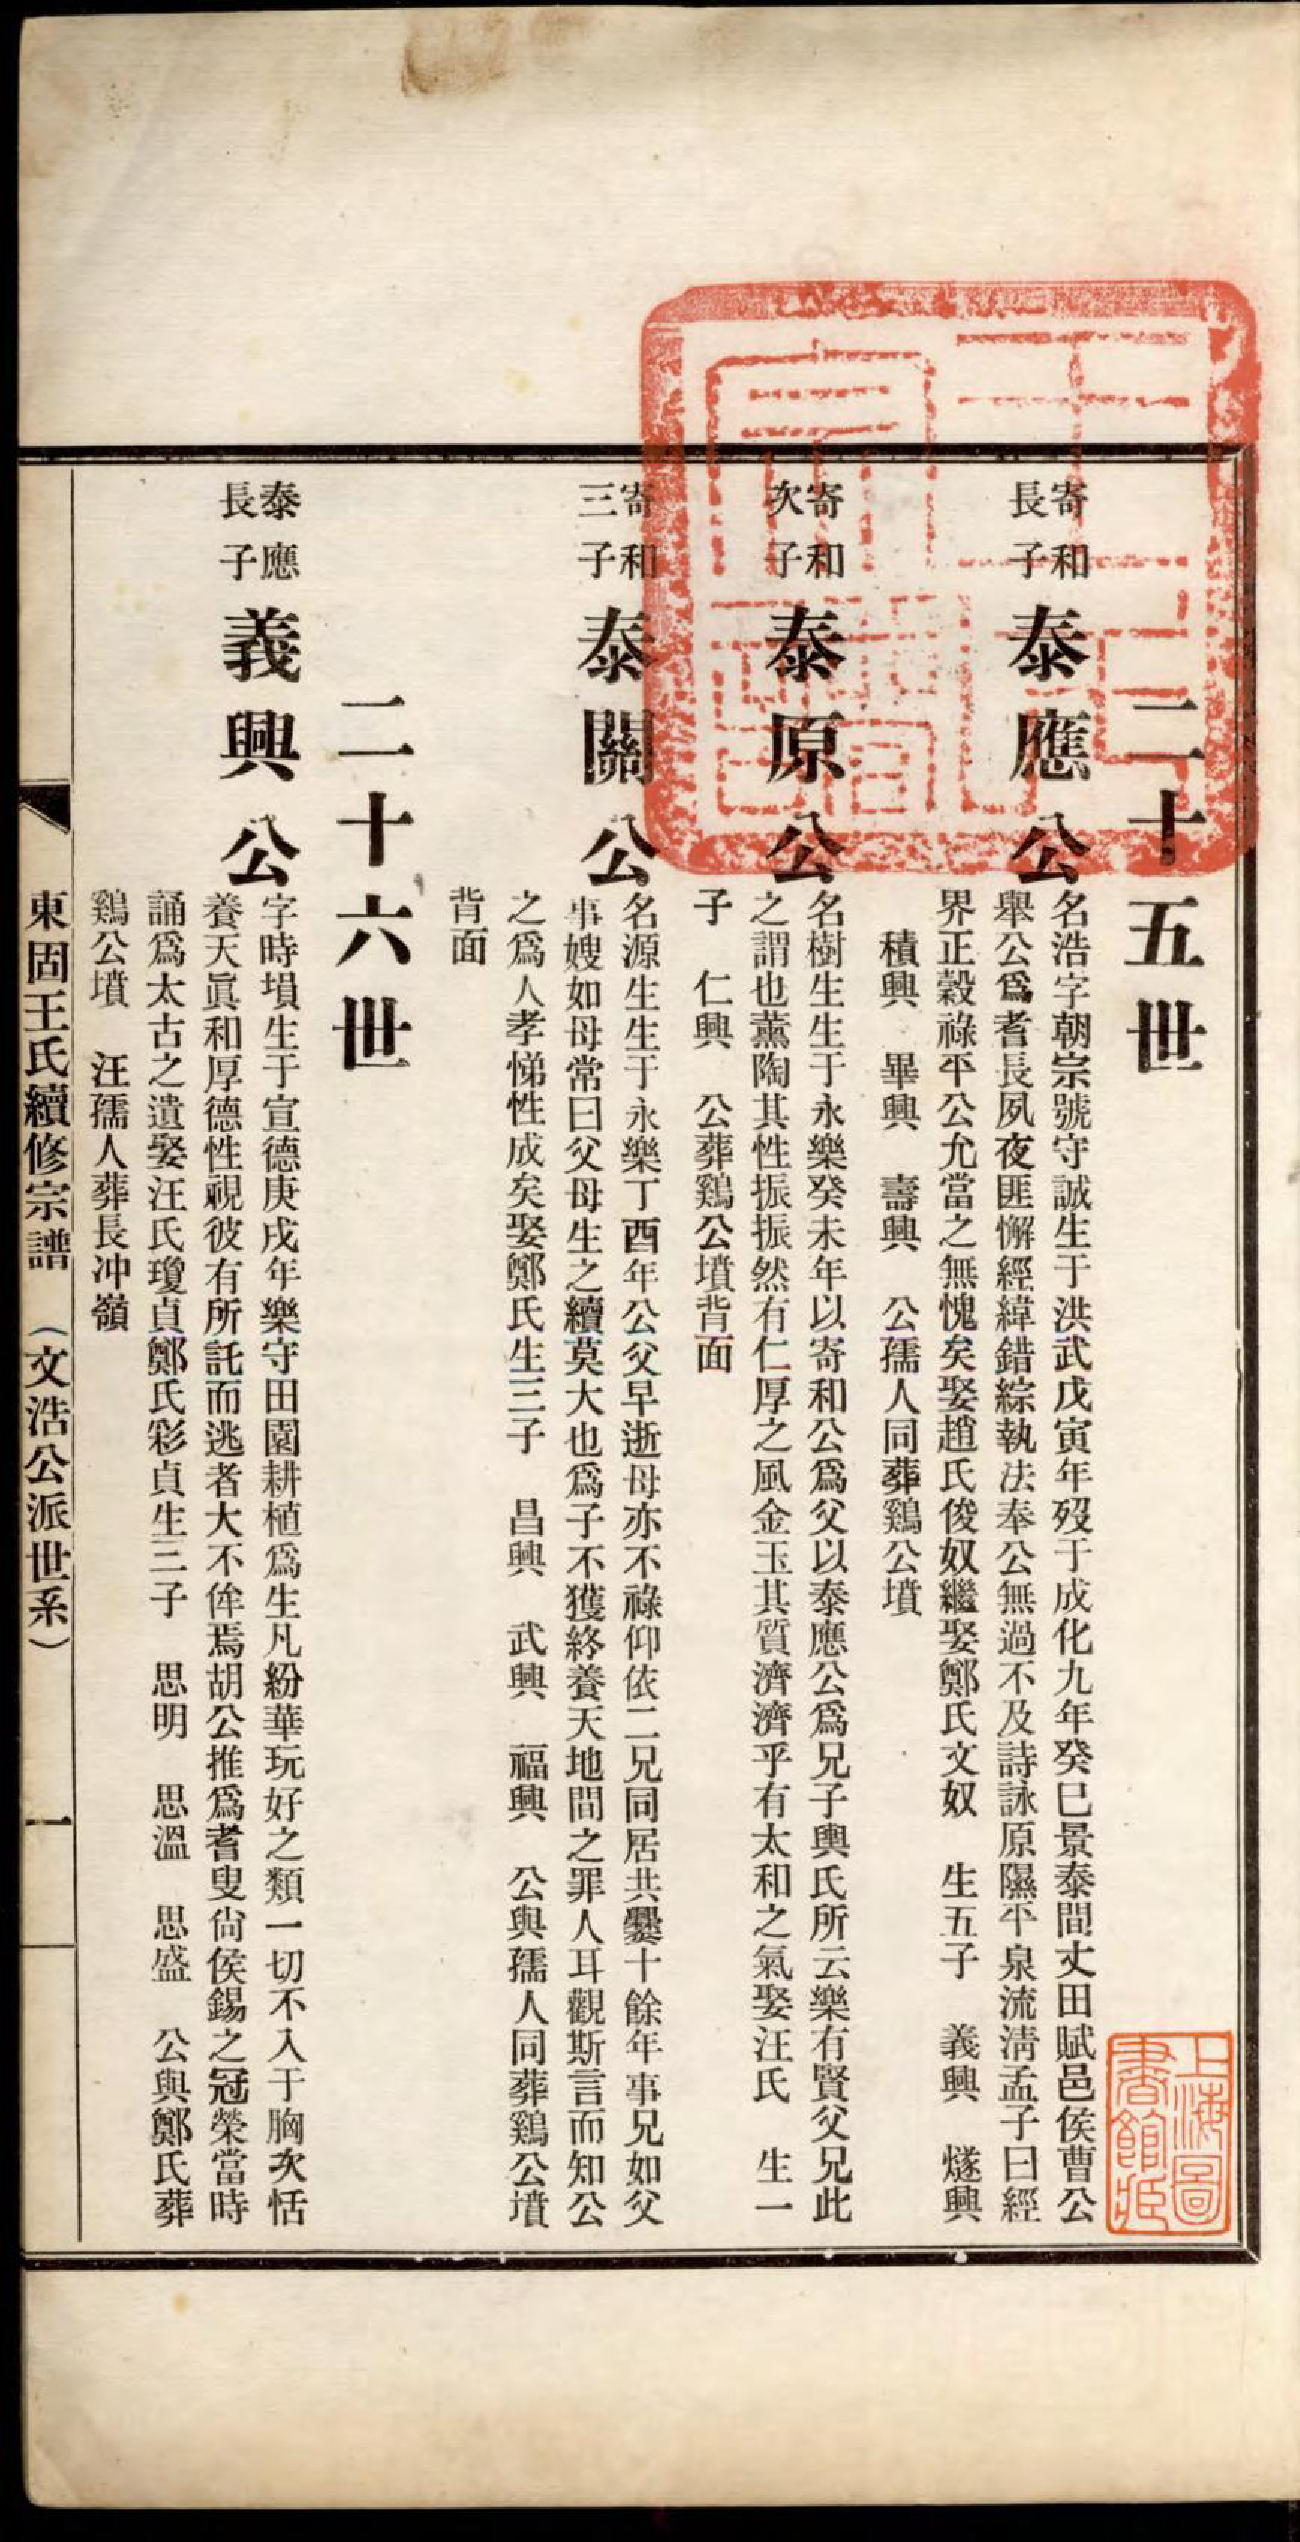 二十五世
寄和
長子
泰應公
名浩字朝宗號守誠生于洪武戊寅年歿于成化九年癸巳景泰間丈田賦邑侯曹公
舉公爲耆長夙夜匪懈經緯錯綜執法奉公無過不及詩詠原隰平泉流淸孟子曰經
界正穀祿平公允當之無愧矣娶趙氏俊奴繼娶鄭氏文奴　生五子　義興　燧興
積興　畢興　壽興　公孺人同葬鷄公墳
寄和
次子
泰原公
名樹生生于永樂癸未年以寄和公爲父以泰應公爲兄子輿氏所云樂有賢父兄此
之謂也薰陶其性振振然有仁厚之風金玉其質濟濟乎有太和之氣娶汪氏　生一
子　仁興　公葬鷄公墳背面
寄和
三子
泰關公
名源生生于永樂丁酉年公父早逝母亦不祿仰依二兄同居共爨十餘年事兄如父
事嫂如母常曰父母生之續莫大也爲子不獲終養天地間之罪人耳觀斯言而知公
之爲人孝悌性成矣娶鄭氏生三子　昌興　武興　福興　公與孺人同葬鷄公墳
背面
二十六世
泰應
長子
義興公
字時塤生于宣德庚戌年樂守田園耕植爲生凡紛華玩好之類一切不入于胸次恬
養天眞和厚德性視彼有所託而逃者大不侔焉胡公推爲耆叟尙侯錫之冠榮當時
誦爲太古之遺娶汪氏瓊貞鄭氏彩貞生三子　思明　思溫　思盛　公與鄭氏葬
鷄公墳　汪孺人葬長冲嶺
東固王氏續修宗譜　（文浩公派世系）　一
上海圖
書館藏